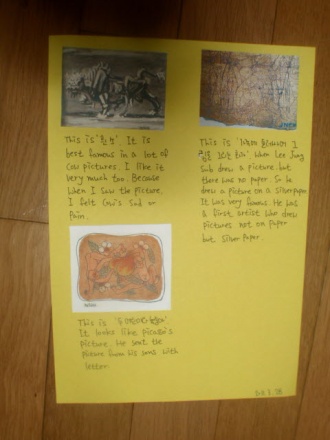 This is '흰 소'. It is
best famous in a lot of
Cow pictures. I like it
very much too. Because
When I saw the picture,
I felt Cow's sad or
Pain.
This is
When Lee Jung
Sub drew a picture but
there was no paper. So he
drew a picture on a silverpaper
It was very famous. He was
a first artist who drew
pictures not on paper
but silver paper.
This is
It looks like picaso's
picture. He sent the
picture from his sons with
letter.